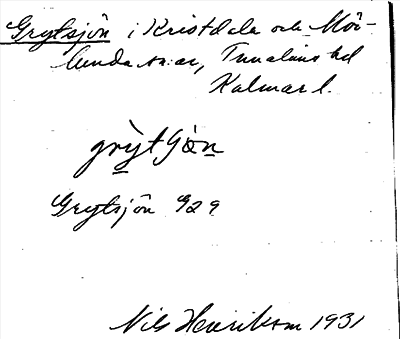 Grytsjön i Kristdala och Mör-
lunda sn:ar, Tunaläns hd
Kalmar l.
grỳtʃö̀n
Grytsjön G29
Nils Henrikson 1931